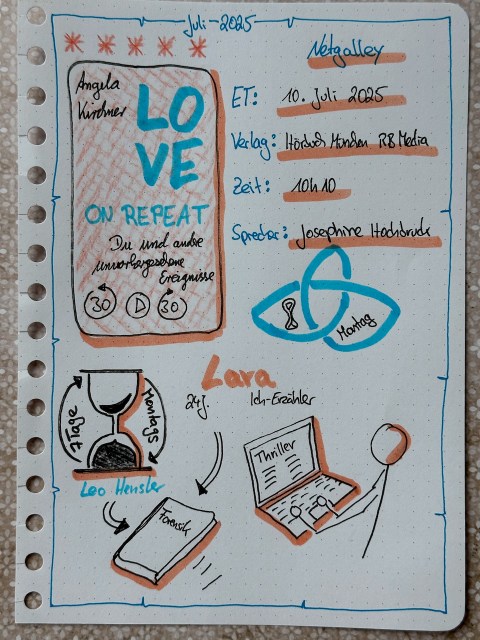 Juli-2025
Netgalley
Angela
Kirchner
LO
VE
ON REPEAT
Du und andere
unvorhergesehene
Ereignisse
30
30
ET: 10. Juli 2025
Verlag: Hörbuch München RB Media
Zeit: 10h 10
Sprecher: Josephine Hochbruck
Montag
Lara
24J.
Ich-Erzähler
7 Tage
Montags
Leo Hensler
Forensik
Thriller